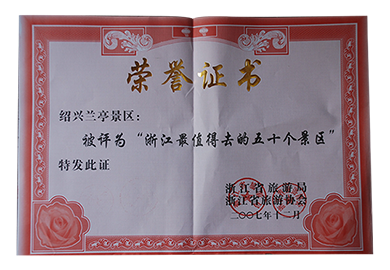 荣誉证书
绍兴兰亭景区：
被评为“浙江最值得去的五十个景区”
特发此证
浙江省旅游局
浙江省旅游协会
二〇〇七年十二月